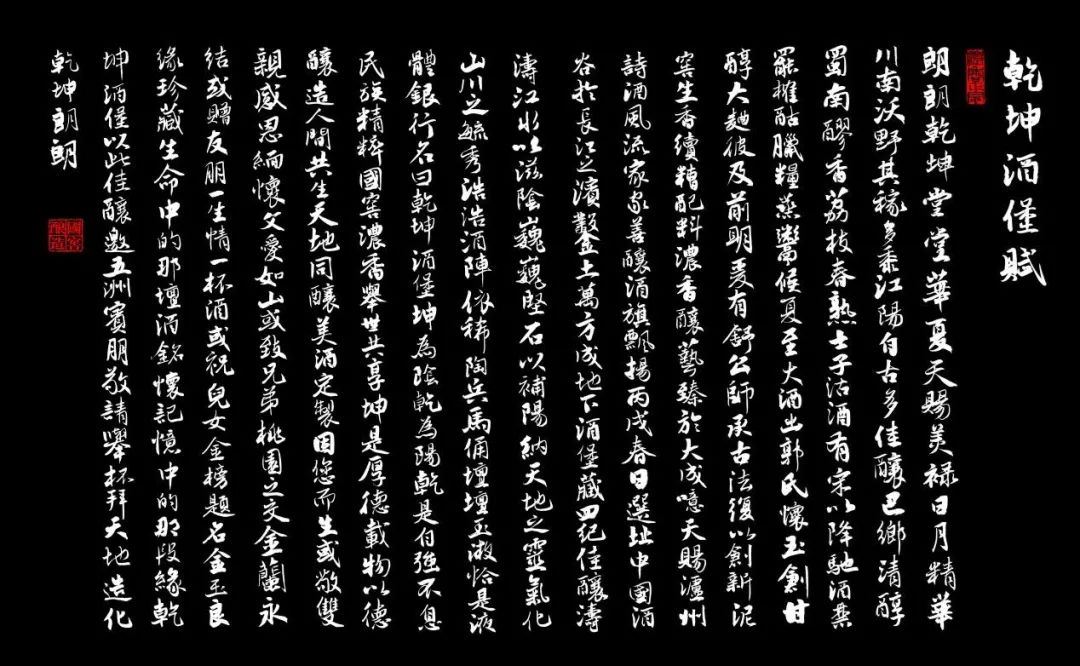 乾坤酒堡賦
朗朗乾坤堂堂華夏天賜美祿日月精華
川南沃野其稼多黍江陽自古多佳釀巴鄉清醇
蜀南醪香荔枝春熟士子沽酒有宋以降馳酒禁
罷榷酤臘糧蒸鬻候夏至大酒出郭氏懷玉創甘
醇大麯彼及前明爰有舒公師承古法復以創新泥
窖生香續糟配料濃香釀藝臻於大成噫天賜瀘州
詩酒風流家家善釀酒旗飄揚丙戌春日選址中國酒
谷於長江之濱鑿土萬方成地下酒堡藏四紀佳釀濤
濤江水以滋陰巍巍堅石以補陽納天地之靈氣化
山川之毓秀浩浩酒陣依稀陶兵馬俑壇壇玉液恰是液
體銀行名曰乾坤酒堡坤為陰乾為陽乾是自強不息
民族精粹國窖濃香舉世共享坤是厚德載物以德
釀造人間共生天地同釀美酒定製因您而生或敬雙
親感恩緬懷父愛如山或致兄弟桃園之交金蘭永
結或贈友朋一生情一杯酒或祝兒女金榜題名金玉良
緣珍藏生命中的那壇酒銘懷記憶中的那段緣乾
坤酒堡以此佳釀邀五洲賓朋敬請舉杯拜天地造化
乾坤朗朗